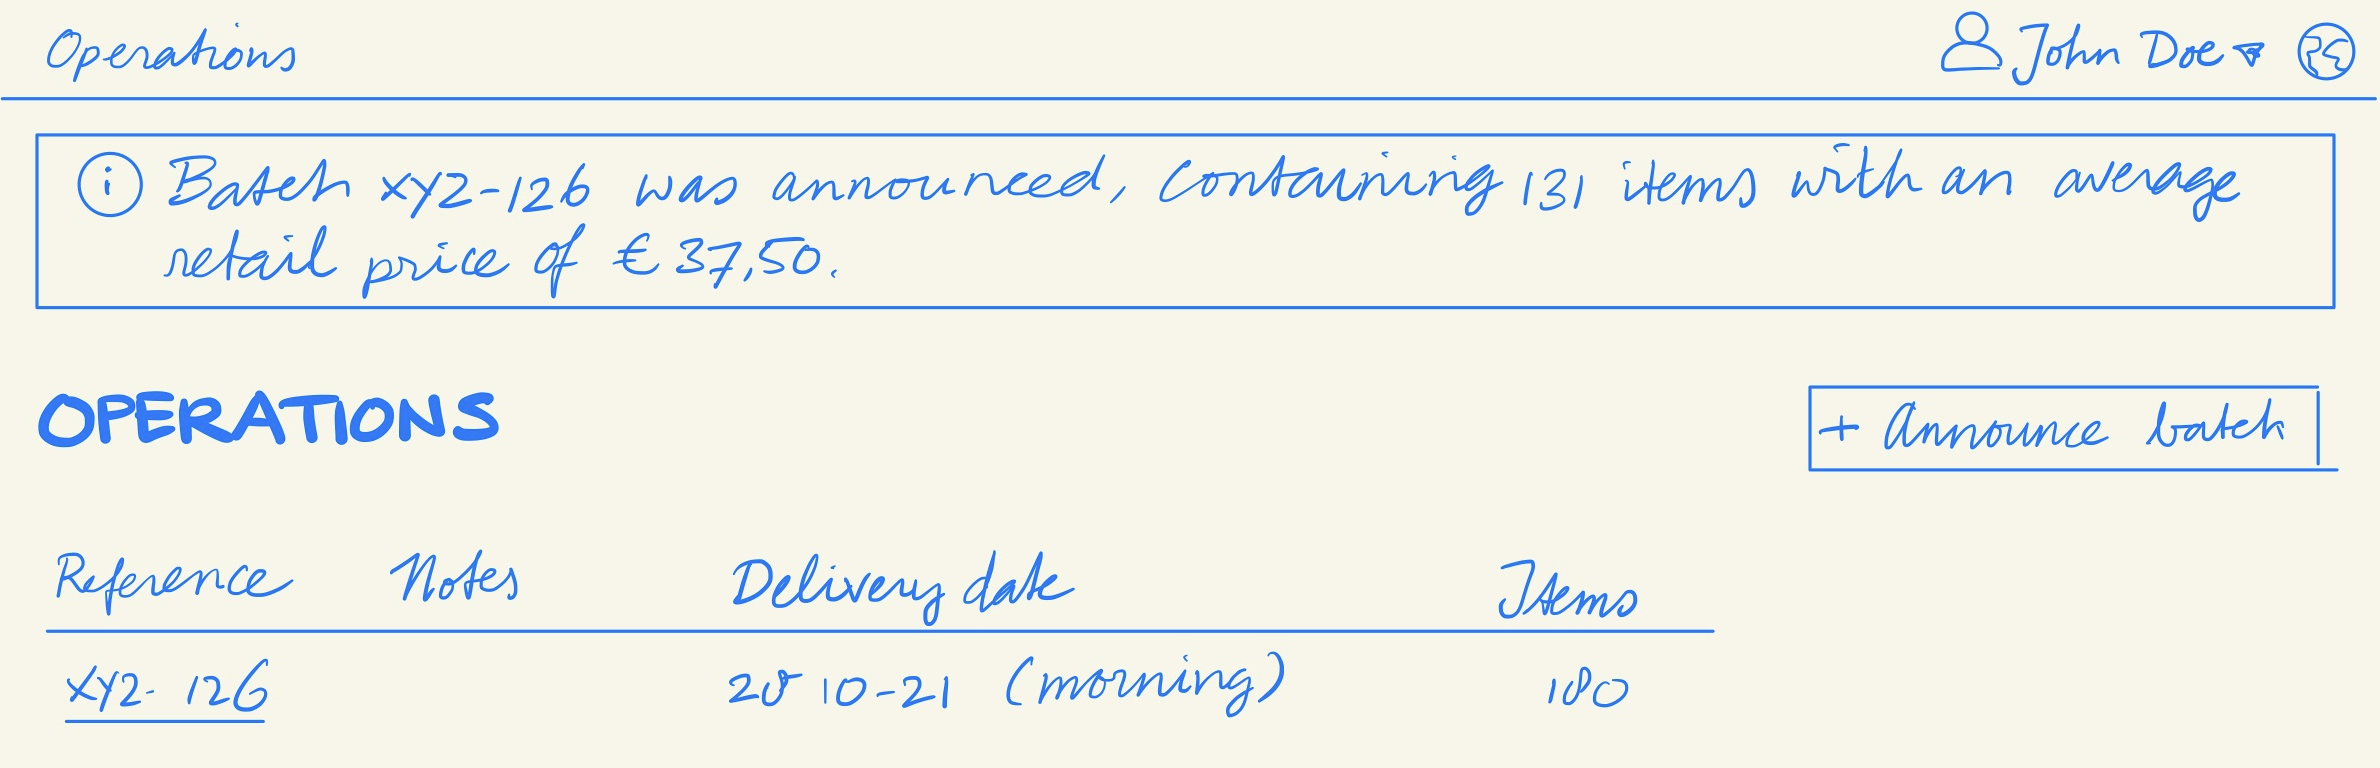 Operations John Doe
Batch XYZ-126 was announced, containing 131 items with an average
retail price of € 37,50.
OPERATIONS + Announce batch
Reference Notes Delivery date Items
XYZ-126 28-10-21 (morning) 180